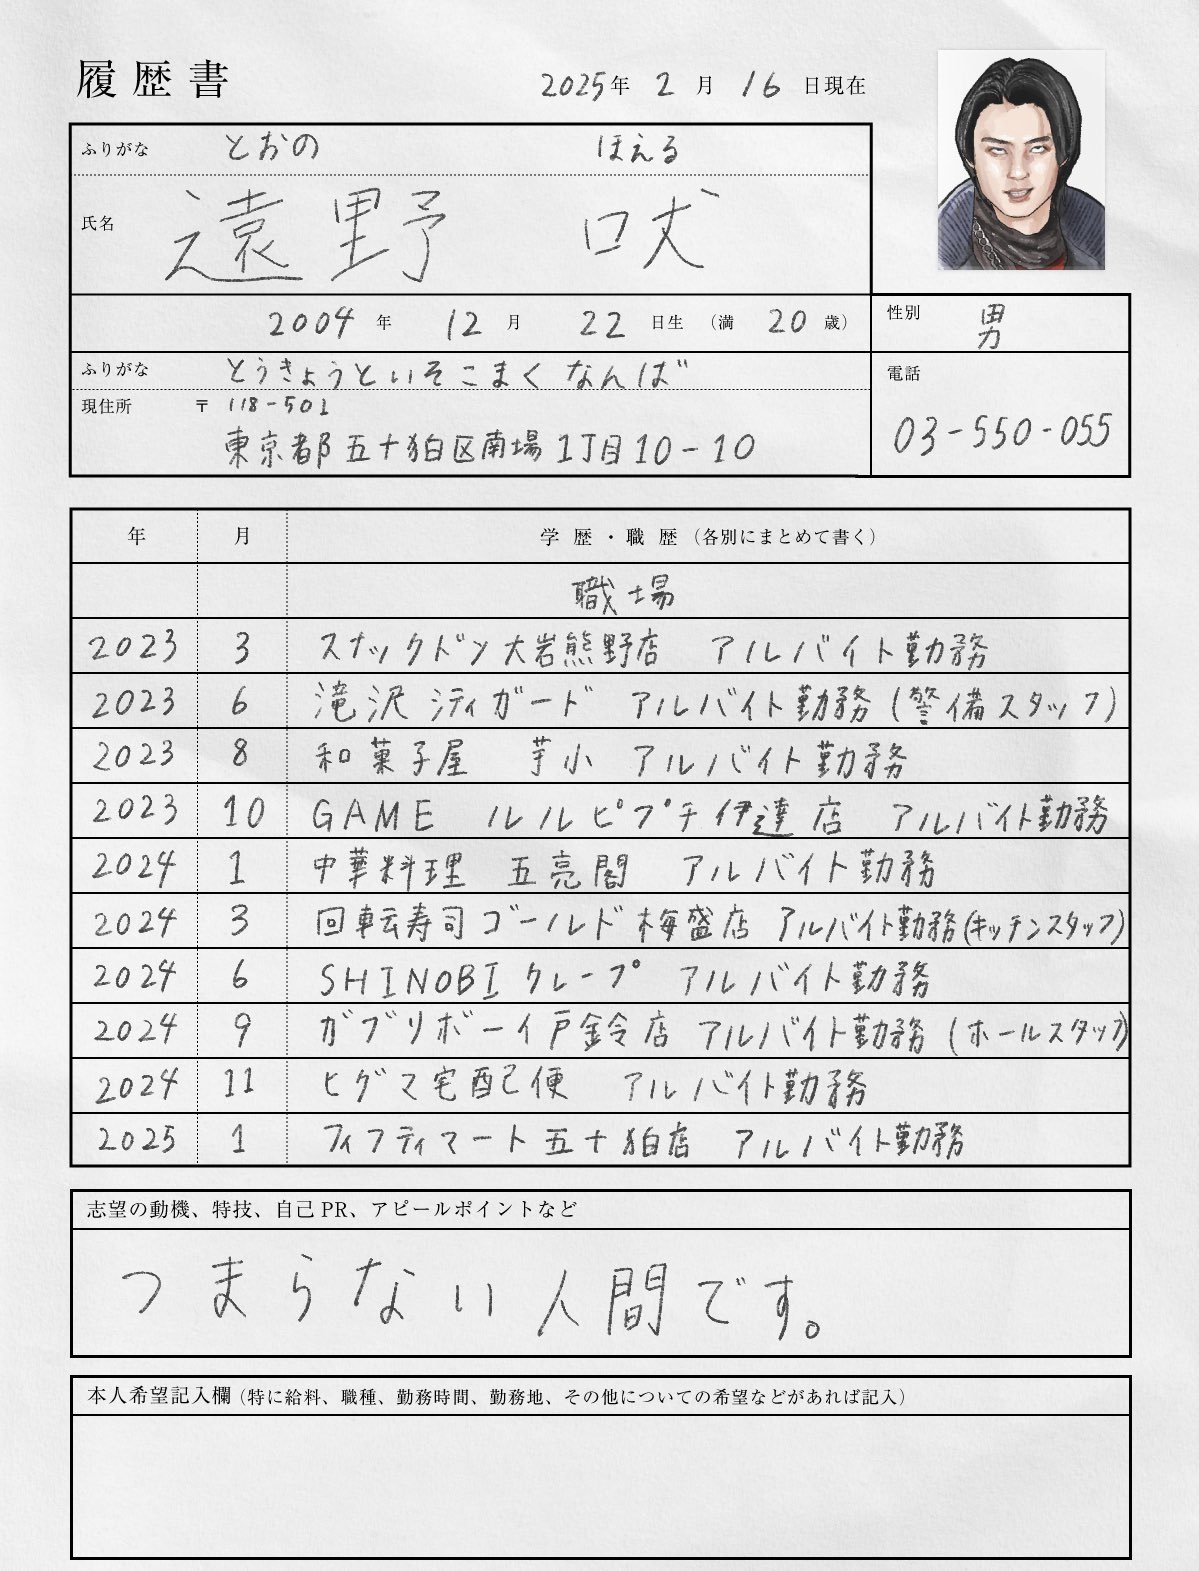 履歴書
2025年 2 月 16 日現在
ふりがな とおの ほえる
氏名 遠野 吠
2004 年 12 月 22 日生 (満 20 歳)
性別 男
ふりがな とうきょうといそこまくなんば
現住所 〒 118-501
東京都五十狛区南場1丁目10-10
電話
03-550-055
年 月 学歴・職歴(各別にまとめて書く)
職場
2023 3 スナックドン大岩熊野店 アルバイト勤務
2023 6 滝沢シティガード アルバイト勤務(警備スタッフ)
2023 8 和菓子屋 芋小 アルバイト勤務
2023 10 GAME ルルピプチ伊達店 アルバイト勤務
2024 1 中華料理 五亮閣 アルバイト勤務
2024 3 回転寿司ゴールド梅盛店 アルバイト勤務(キッチンスタッフ)
2024 6 SHINOBIクレープ アルバイト勤務
2024 9 ガブリボーイ戸鈴店 アルバイト勤務(ホールスタッフ)
2024 11 ヒグマ宅配便 アルバイト勤務
2025 1 フィフティマート五十狛店 アルバイト勤務
志望の動機、特技、自己PR、アピールポイントなど
つまらない人間です。
本人希望記入欄(特に給料、職種、勤務時間、勤務地、その他についての希望などがあれば記入)